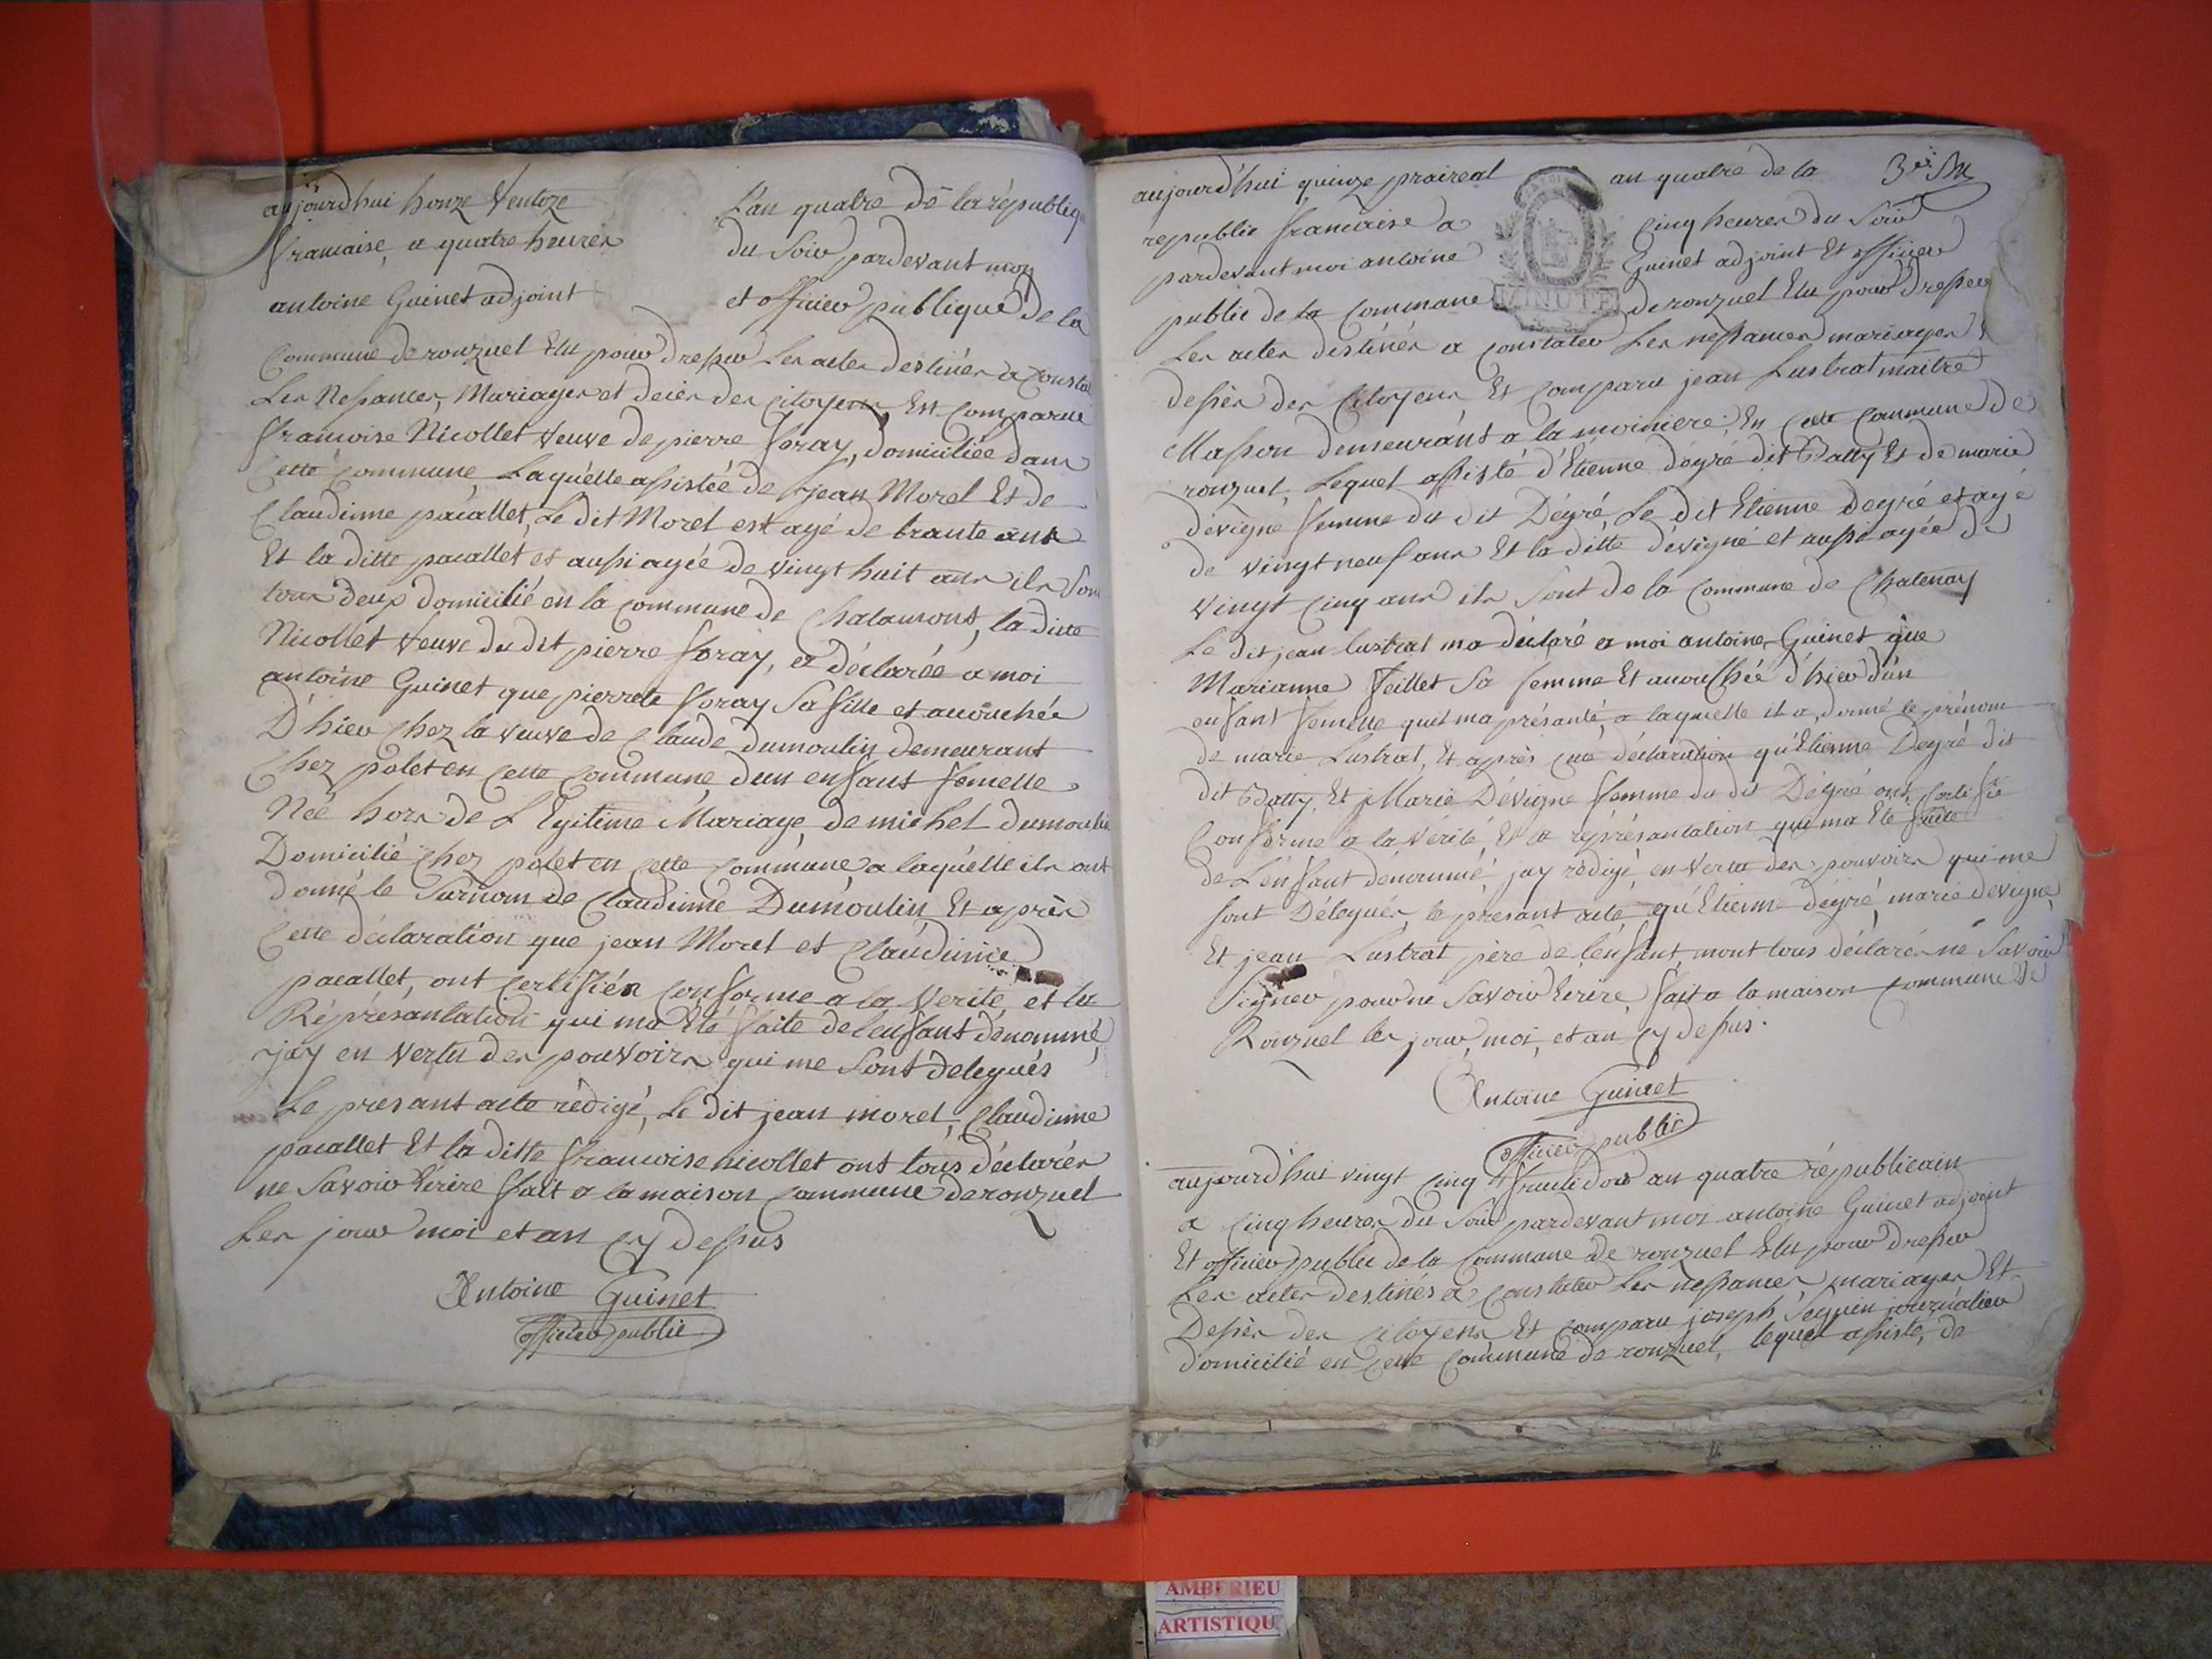 aujourdhui honze Ventoze L'an quatre de la républiq
francaise, a quatre heures du Soir pardevant moy
antoine Guinet adjoint et officier publique de la
Commune de ronzuel Elu pour dresser Les actes destinés a Consta
Les Nessances, Mariages et decès des citoyens, Est Comparue
francoise Nicollet Veuve de pierre foray, domiciliée dans
Cette Commune Laquélle assistéé de jean Morel Et de
Claudinne pacallet, Le dit Morel est agé de trante ans
Et la ditte pacallet et aussi agéé de vingt huit ans ils Son
tous deux domicilié en la commune de Chalamont, la ditte
Nicollet Veuve du dit pierre foray, a déclaréé a moi
antoine Guinet que pierrete foray Sa fille et acouchée
D'hier chez la veuve de Claude dumoulin demeurant
Chez polet en Cette Commune, dun enfant femelle
Néé hors de LEgitime Mariage, de michel dumoulin
Domicilié chez polet en cette commune, a laquélle ils ont
donné le Surnom de Claudinne Dumoulin, Et après
Cette déclaration que jean Morel et Claudinne
pacallet, ont Certifiés Conforme a la Verite, et la
Réprésantation qui ma Eté faite de lenfant dénommé,
jay en vertu des pouvoirs qui me Sont delegués
Le présant acte rédigé, Le dit jean morel, Claudinne
pacallet Et la ditte francoise nicollet ont tous déclarés
ne Savoir Ecrire fait a la maison Commune de ronzuel
Les jour moi et an cy dessus
Antoine Guinet
officier public
3e
aujourd'hui quinze praireal an quatre de la
republic francaise a Cinq heures du Soir
pardevant moi antoine Guinet adjoint Et officier
public de la Commune de ronzuel Elu pour dresser
Les actes destinés a Constater Les nessances mariages
dessès des Citoyens Et Comparu jean Lustrat maitre
Masson demeurant a la moiniere En cette Commune de
ronzuel, Lequel assisté d'Etienne dégré dit Batty Et de marie
dévigne femme du dit Dégré, Le dit Etienne degré et agé
de vingt neuf ans Et la ditte dévigne et aussi agéé de
vingt Cinq ans ils Sont de la Commune de Chatenay
Le dit jean lustrat ma déclaré a moi antoine Guinet que
Marianne feillet Sa femme Et acouchéé d'hier d'un
enfant femelle quil ma présanté, a laquelle il a, donné le prénom
de marie Lustrat, Et après cette déclaration qu'Etienne Degré dit
dit Batty, Et Marie Dévigne femme du dit Dégré ont, certifié
Conforme a la vérité, Et la réprésantation qui ma Eté faite
de L'enfant dénommé, jay rédigé, en vertu des pouvoirs qui me
sont Délegués, le presant acte, qu'Etienne dégré, marie devigne,
Et jean Lustrat père de lénfant, mont tous déclarés né Savoir
Signer pour ne Savoir Ecrire, fait a la maison Commune de
Ronzuel les jour, moi, et an cy dessus.
Antoine Guinet
officier public
aujourd'hui vingt Cinq fructidor an quatre républicain
a Cinq heures du Soir pardevant moi antoine Guinet adjoint
Et officier public de la Commune de ronzuel Elu pour dresser
Les actes destinés a Constater Les nessances mariages Et
Dessès des Citoyens Et Comparu joseph Seguin journalier
domicilié en cette Commune de ronzuel, lequel assisté, de
MINUTE
AMBERIEU
ARTISTIQU